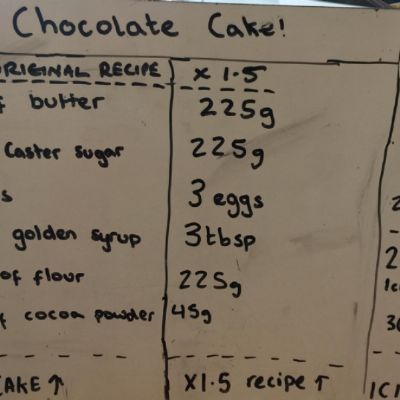 Chocolate Cake!
ORIGINAL RECIPE x 1.5
butter 225g
Caster sugar 225g
s 3 eggs
golden syrup 3tbsp
of flour 225g
cocoa powder 45g
CAKE ↑ X1.5 recipe ↑ ICI